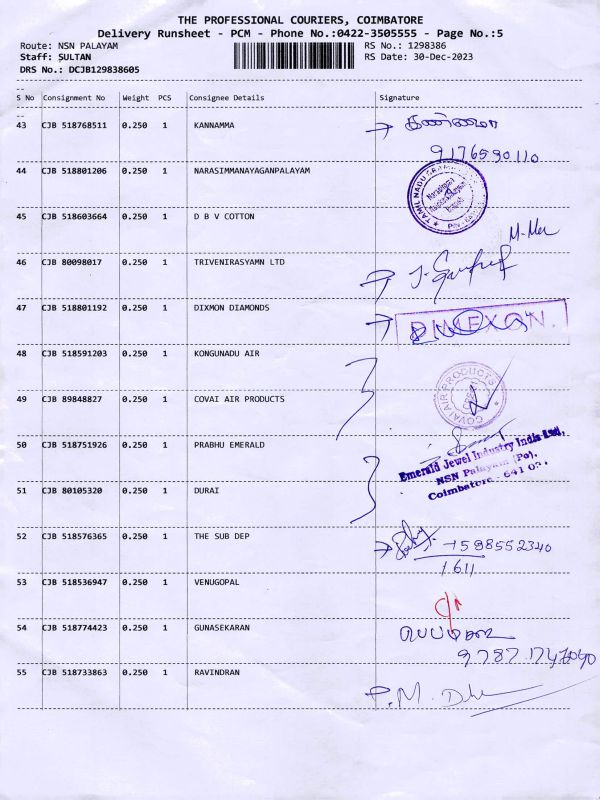 THE PROFESSIONAL COURIERS, COIMBATORE
Delivery Runsheet - PCM - Phone No.:0422-3505555 - Page No.:5
Route: NSN PALAYAM RS No.: 1298386
Staff: SULTAN RS Date: 30-Dec-2023
DRS No.: DCJB129838605
--
S No Consignment No Weight PCS Consignee Details Signature
--
43 CJB 518768511 0.250 1 KANNAMMA → கண்ணம்மா
9176590110
44 CJB 518801206 0.250 1 NARASIMMANAYAGANPALAYAM
TAMIL NADU
45 CJB 518603664 0.250 1 D B V COTTON
46 CJB 80098017 0.250 1 TRIVENIRASYAMN LTD
47 CJB 518801192 0.250 1 DIXMON DIAMONDS
48 CJB 518591203 0.250 1 KONGUNADU AIR
49 CJB 89848827 0.250 1 COVAI AIR PRODUCTS
COVAI AIR PRODUCTS
50 CJB 518751926 0.250 1 PRABHU EMERALD
Emerald Jewel Industry India Ltd,
NSN Palayam (Po),
Coimbatore - 641 031
51 CJB 80105320 0.250 1 DURAI
52 CJB 518576365 0.250 1 THE SUB DEP
7598552340
1611
53 CJB 518536947 0.250 1 VENUGOPAL
54 CJB 518774423 0.250 1 GUNASEKARAN
97871747040
55 CJB 518733863 0.250 1 RAVINDRAN
P.M.